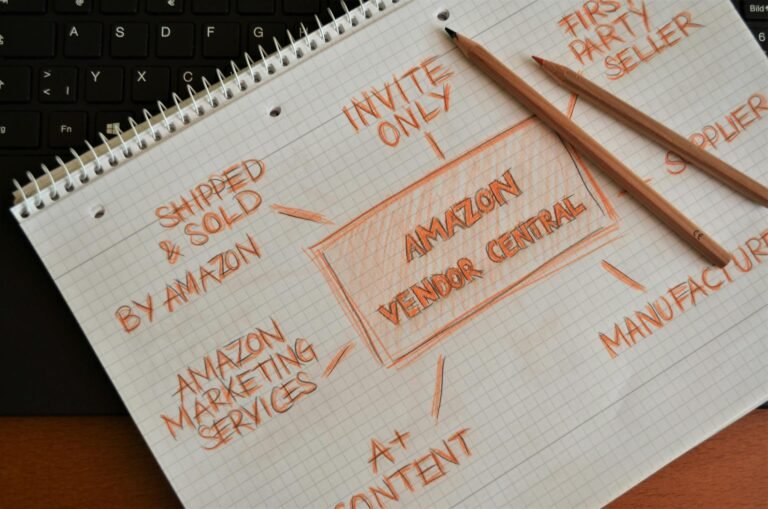 INVITE
ONLY
FIRST
PARTY
SELLER
SUPPLIER
MANUFACTURE
A+
CONTENT
AMAZON
MARKETING
SERVICES
SHIPPED
& SOLD
BY AMAZON
AMAZON
VENDOR CENTRAL
A
S
D
F
G
Y
X
C
Fn
Bild
6